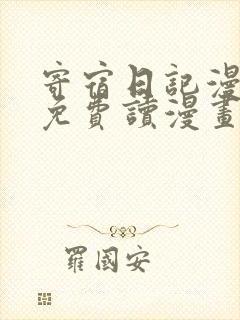 寄宿日記漫
免費讀漫畫
羅國安